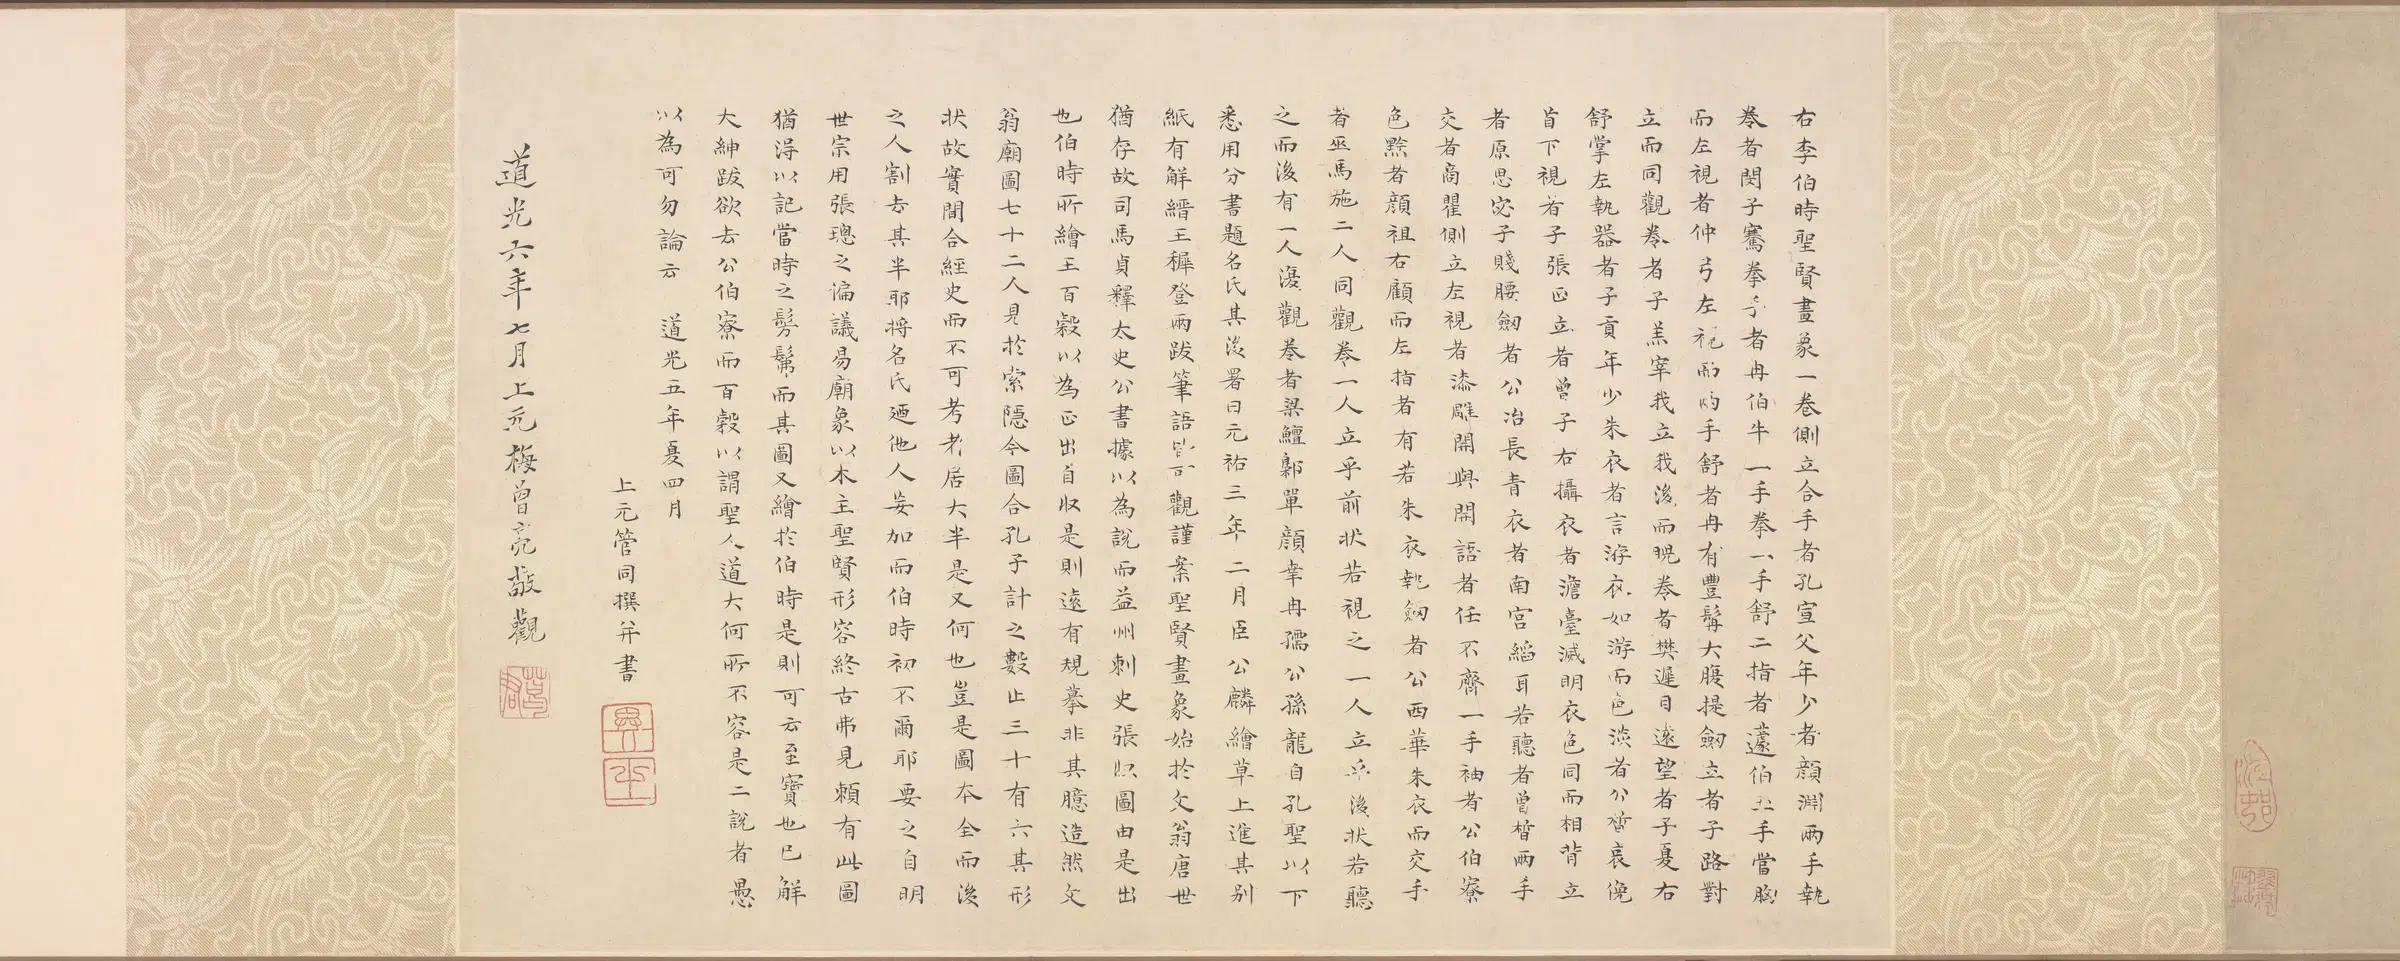 右李伯時聖賢畫象一卷側立合手者孔宣父年少者顏淵兩手執
卷者閔子騫拳手者冉伯牛一手拳一手舒二指者蘧伯玉手當胸
而左視者仲弓左視而灼手舒者冉有豐髯大腹提劒立者子路對
立而同觀卷者子羔宰我立我後而睨卷者樊遲目遠望者子夏右
舒掌左執器者子貢年少朱衣者言游衣如游而色淡者公皙哀俛
首下視者子張正立者曾子右攝衣者澹臺滅明衣色同而相背立
者原思宓子賤腰劒者公冶長青衣者南宮縚耳若聽者曾皙兩手
交者商瞿側立左視者漆雕開與開語者任不齊一手袖者公伯寮
色黲者顏祖右顧而左指者有若朱衣執劒者公西華朱衣而交手
者巫馬施二人同觀卷一人立乎前狀若視之一人立乎後狀若聽
之而後有一人復觀卷者梁鱣鄡單顏幸冉孺公孫龍自孔聖以下
悉用分書題名氏其後署曰元祐三年二月臣公麟繪草上進其別
紙有解縉王穉登兩跋筆語皆可觀謹案聖賢畫象始於文翁唐世
猶存故司馬貞釋太史公書據以為說而益州刺史張收圖由是出
也伯時所繪王百穀以為正出自收是則遠有規摹非其臆造然文
翁廟圖七十二人見於索隱今圖合孔子計之數止三十有六其形
狀故實間合經史而不可考者居大半是又何也豈是圖本全而後
之人割去其半耶將名氏廼他人妄加而伯時初不爾耶要之自明
世宗用張璁之偏議易廟象以木主聖賢形容終古弗見賴有此圖
猶得以記當時之髣髴而其圖又繪於伯時是則可云至寶也已解
大紳跋欲去公伯寮而百穀以謂聖人道大何所不容是二說者愚
以為可勿論云 道光五年夏四月
上元管同撰并書
異之
道光六年七月上元梅曾亮敬觀
葛君